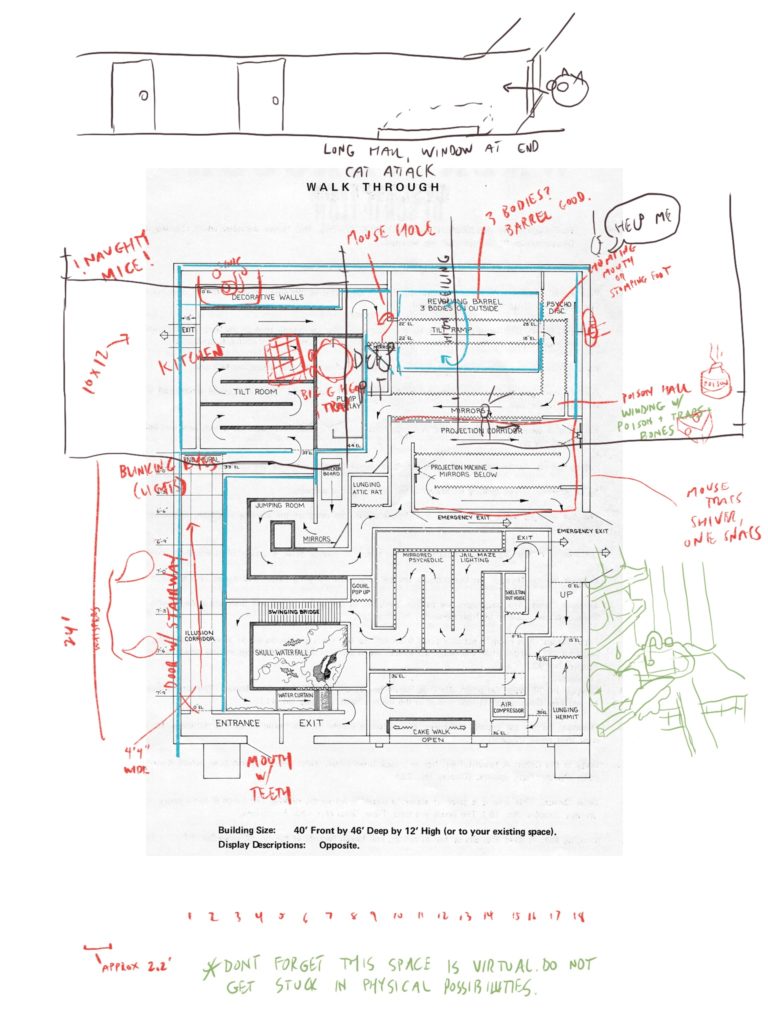 LONG HALL, WINDOW AT END
CAT ATTACK
WALK THROUGH
3 BODIES?
BARREL GOOD.
MOUSE HOLE
HELP ME
! NAUGHTY
MICE!
MOUTH
OR
STOMPING FOOT
DECORATIVE WALLS
REVOLVING BARREL
3 BODIES ON OUTSIDE
PSYCHO
DISC
EXIT
22' EL.
TILT RAMP
10 x 12
KITCHEN
TILT ROOM
PIT
POISON
MIRRORS
POISON HALL
WINDING W/
POISON + TRAPS
BONES
PROJECTION CORRIDOR
PROJECTION MACHINE
MIRRORS BELOW
BLINKING EYES
(LIGHTS)
LUNGING
ATTIC RAT
JUMPING ROOM
MIRRORS
EMERGENCY EXIT
EMERGENCY EXIT
MOUSE
TRAPS
SHIVER,
ONE SNAPS
EXIT
MIRRORED
PSYCHEDLIC
JAIL MAZE
LIGHTING
GOURL
POP UP
SKELETON
OUT HOUSE
UP
24'
WHISPERS
DOOR W/ STAIRWAY
SWINGING BRIDGE
ILLUSION
CORRIDOR
SKULL WATERFALL
WATER CURTAIN
AIR
COMPRESSOR
LUNGING
HERMIT
ENTRANCE
EXIT
CAKE WALK
OPEN
4'4"
WIDE
MOUTH
W/
TEETH
Building Size: 40' Front by 46' Deep by 12' High (or to your existing space).
Display Descriptions: Opposite.
1 2 3 4 5 6 7 8 9 10 11 12 13 14 15 16 17 18
APPROX 2.2'
*DONT FORGET THIS SPACE IS VIRTUAL. DO NOT
GET STUCK IN PHYSICAL POSSIBILITIES.